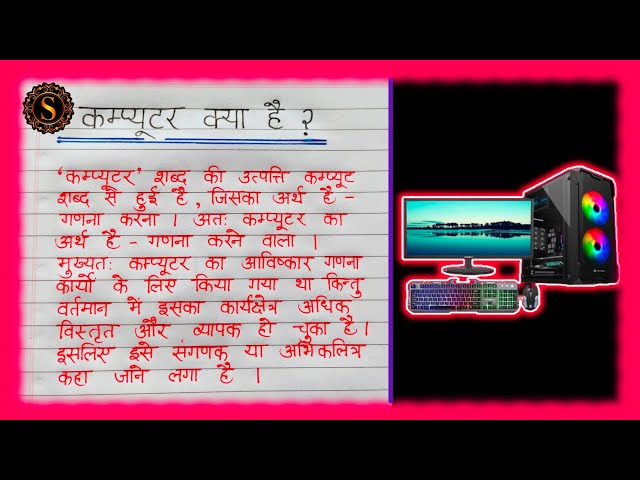 S
कम्प्यूटर क्या है ?
'कम्प्यूटर' शब्द की उत्पत्ति कम्प्यूट
शब्द से हुई है, जिसका अर्थ है -
गणना करना । अतः कम्प्यूटर का
अर्थ है - गणना करने वाला ।
मुख्यतः कम्प्यूटर का आविष्कार गणना
कार्यो के लिए किया गया था किन्तु
वर्तमान में इसका कार्यक्षेत्र अधिक
विस्तृत और व्यापक हो चुका है।
इसलिए इसे संगणक या अभिकलित्र
कहा जाने लगा है ।